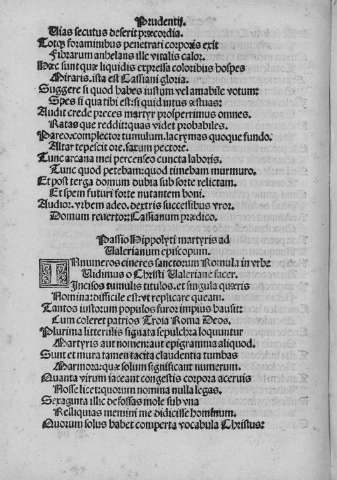 Prudentij.
Vias secutus deserit præcordia.
Totqȝ foraminibus penetrati corporis exit
Fibrarum anhelans ille vitalis calor.
Hæc sunt quæ liquidis expressa coloribus hospes
Miraris. ista est Cassiani gloria.
Suggere si quod habes iustum vel amabile votum:
Spes si qua tibi est: si quid intus æstuas:
Audit crede preces martyr prosperrimus omnes.
Ratas que reddit: quas videt probabiles.
Pareo: complector tumulum. lacrymas quoque fundo.
Altar tepescit ore. saxum pectore.
Tunc arcana mei percenseo cuncta laboris.
Tunc quod petebam: quod timebam murmuro.
Et post terga domum dubia sub sorte relictam.
Et spem futuri forte nutantem boni.
Audior. vrbem adeo. dextris successibus vtor.
Domum revertor: Cassianum prædico.
Passio Hippolyti martyris ad
Valerianum episcopum.
INnumeros cineres sanctorum Romula in vrbe
Vidimus o Christi Valeriane sacer.
Incisos tumulis titulos. et singula quæris
Nomina: difficile est: vt replicare queam.
Tantos iustorum populos furor impius hausit:
Cum coleret patrios Troia Roma Deos.
Plurima litterulis signata sepulchra loquuntur
Martyris aut nomen: aut epigramma aliquod.
Sunt et muta tamen tacita claudentia tumbas
Marmora: quæ solum significant numerum.
Quanta virum iaceant congestis corpora acervis
Nosse licet: quorum nomina nulla legas.
Sexaginta illic defossas mole sub vna
Relliquias memini me didicisse hominum.
Quorum solus habet comperta vocabula Christus: